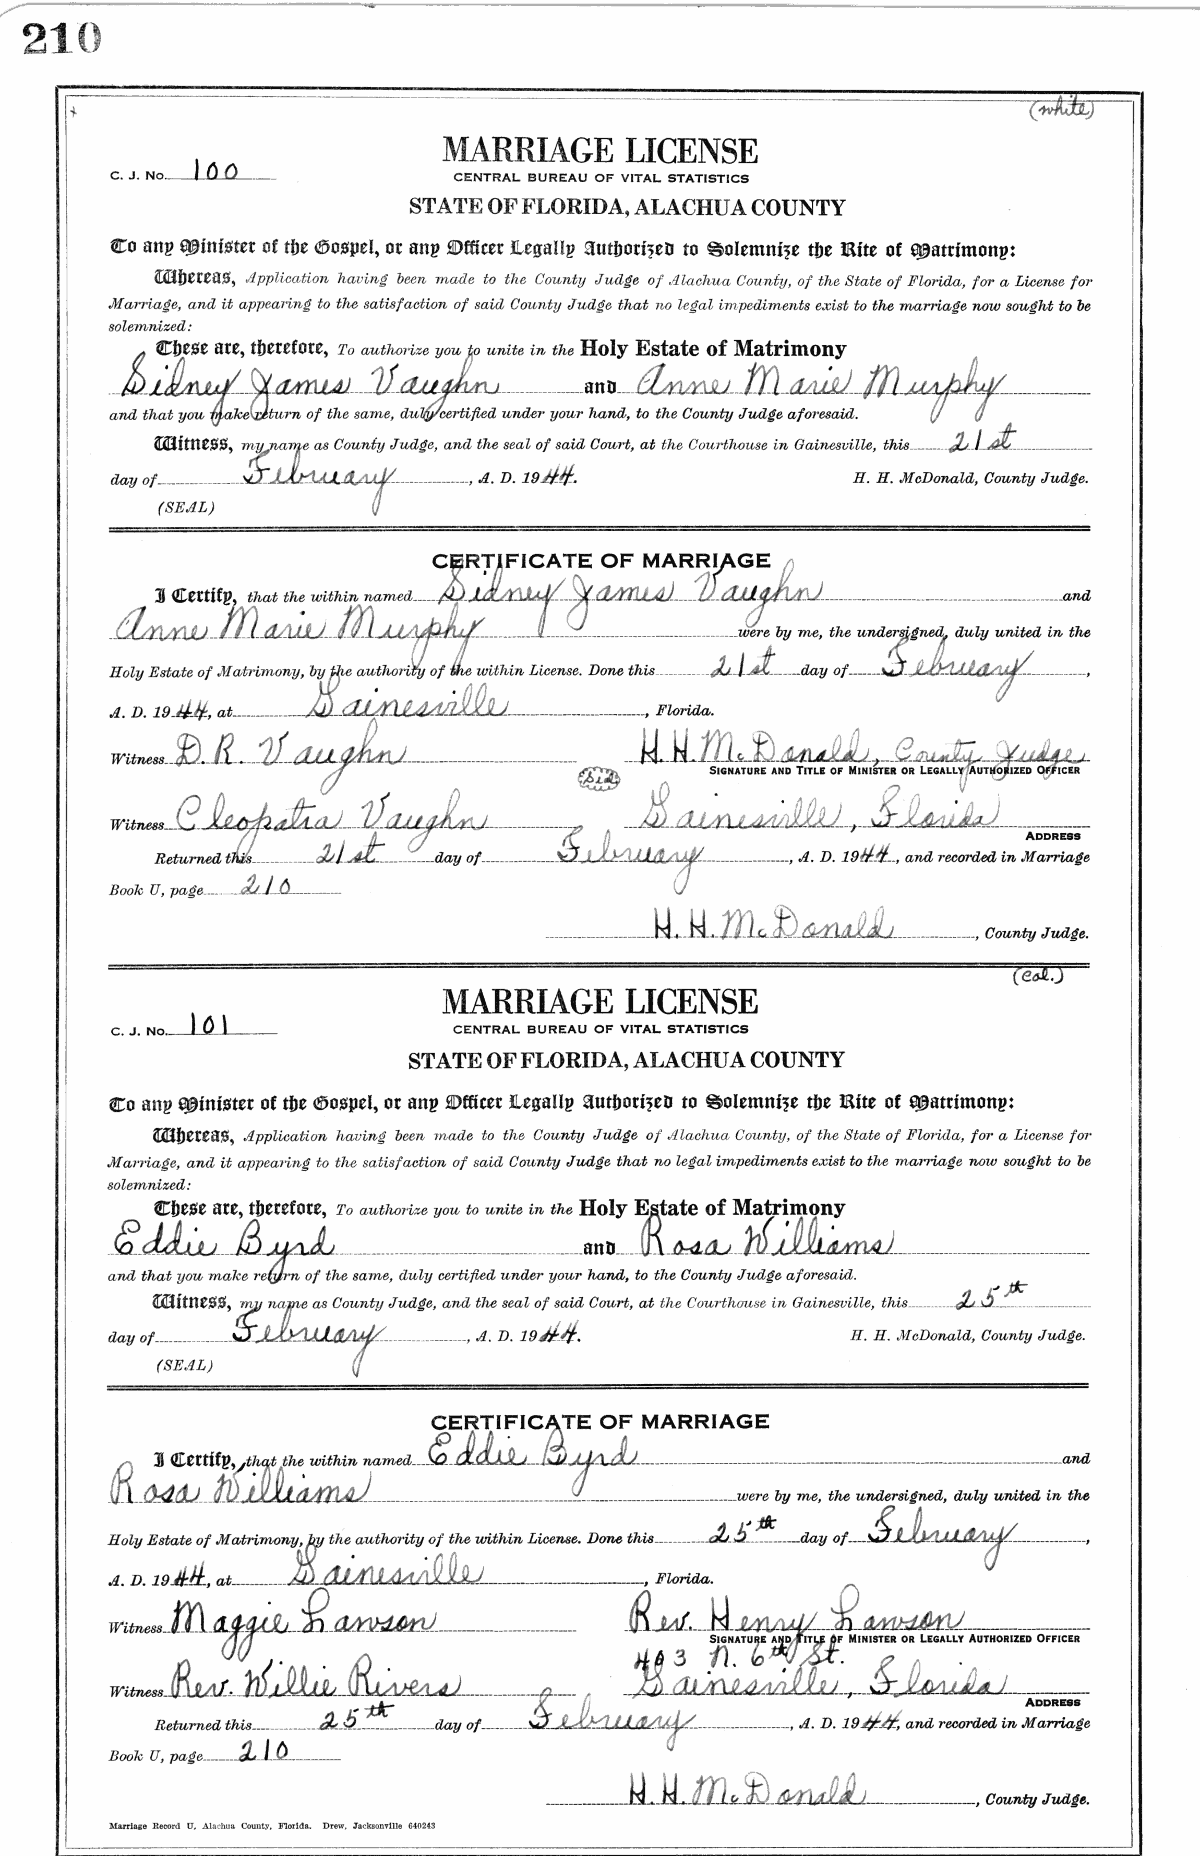 210
(white)
MARRIAGE LICENSE
C. J. No. 100
CENTRAL BUREAU OF VITAL STATISTICS
STATE OF FLORIDA, ALACHUA COUNTY
To any Minister of the Gospel, or any Officer Legally Authorized to Solemnize the Rite of Matrimony:
Whereas, Application having been made to the County Judge of Alachua County, of the State of Florida, for a License for
Marriage, and it appearing to the satisfaction of said County Judge that no legal impediments exist to the marriage now sought to be
solemnized:
These are, therefore, To authorize you to unite in the Holy Estate of Matrimony
Sidney James Vaughn and Anne Marie Murphy
and that you make return of the same, duly certified under your hand, to the County Judge aforesaid.
Witness, my name as County Judge, and the seal of said Court, at the Courthouse in Gainesville, this 21st
day of February, A. D. 1944. H. H. McDonald, County Judge.
(SEAL)
CERTIFICATE OF MARRIAGE
I Certify, that the within named Sidney James Vaughn and
Anne Marie Murphy were by me, the undersigned, duly united in the
Holy Estate of Matrimony, by the authority of the within License. Done this 21st day of February,
A. D. 1944, at Gainesville, Florida.
Witness D. R. Vaughn H. H. McDonald, County Judge
SIGNATURE AND TITLE OF MINISTER OR LEGALLY AUTHORIZED OFFICER
Witness Cleopatra Vaughn Gainesville, Florida
ADDRESS
Returned this 21st day of February, A. D. 1944, and recorded in Marriage
Book U, page 210
H. H. McDonald, County Judge.
(Col.)
MARRIAGE LICENSE
C. J. No. 101
CENTRAL BUREAU OF VITAL STATISTICS
STATE OF FLORIDA, ALACHUA COUNTY
To any Minister of the Gospel, or any Officer Legally Authorized to Solemnize the Rite of Matrimony:
Whereas, Application having been made to the County Judge of Alachua County, of the State of Florida, for a License for
Marriage, and it appearing to the satisfaction of said County Judge that no legal impediments exist to the marriage now sought to be
solemnized:
These are, therefore, To authorize you to unite in the Holy Estate of Matrimony
Eddie Byrd and Rosa Williams
and that you make return of the same, duly certified under your hand, to the County Judge aforesaid.
Witness, my name as County Judge, and the seal of said Court, at the Courthouse in Gainesville, this 25th
day of February, A. D. 1944. H. H. McDonald, County Judge.
(SEAL)
CERTIFICATE OF MARRIAGE
I Certify, that the within named Eddie Byrd and
Rosa Williams were by me, the undersigned, duly united in the
Holy Estate of Matrimony, by the authority of the within License. Done this 25th day of February,
A. D. 1944, at Gainesville, Florida.
Witness Maggie Lawson Rev. Henry Lawson
SIGNATURE AND TITLE OF MINISTER OR LEGALLY AUTHORIZED OFFICER
403 N. 6th St.
Witness Rev. Willie Rivers Gainesville, Florida
ADDRESS
Returned this 25th day of February, A. D. 1944, and recorded in Marriage
Book U, page 210
H. H. McDonald, County Judge.
Marriage Record U, Alachua County, Florida. Drew, Jacksonville 640243